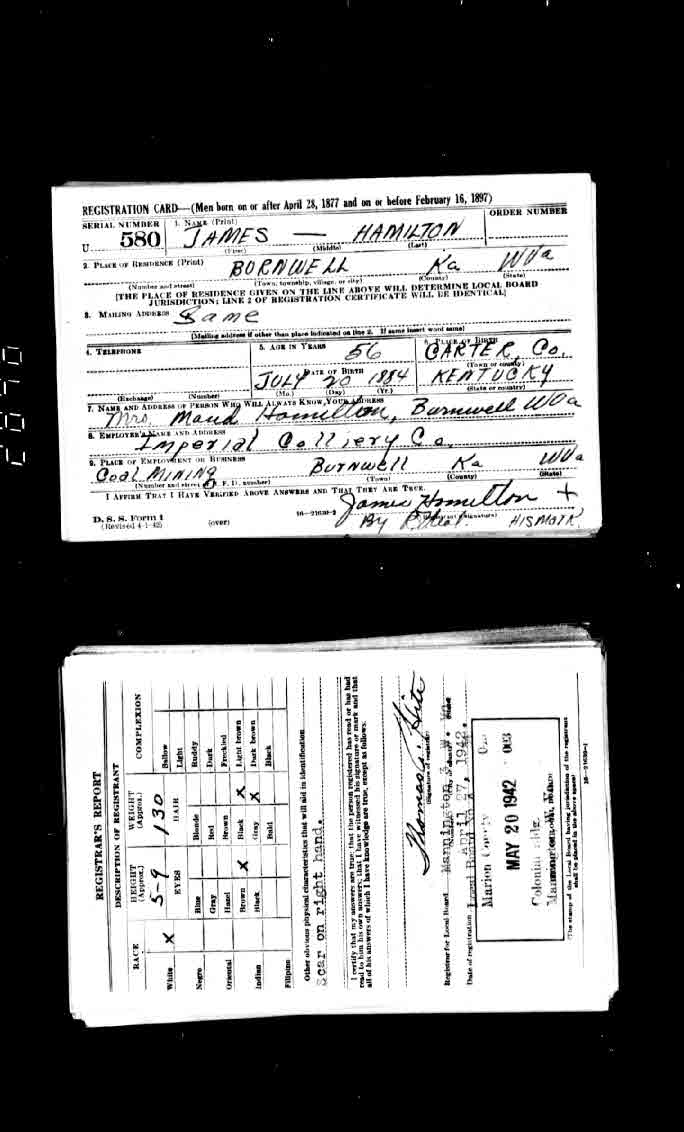 REGISTRATION CARD—(Men born on or after April 28, 1877 and on or before February 16, 1897)
SERIAL NUMBER 1. NAME (Print) ORDER NUMBER
U 580 JAMES — HAMILTON
(First) (Middle) (Last)
2. PLACE OF RESIDENCE (Print)
BURNWELL Ka WVa
(Number and street) (Town, township, village, or city) (County) (State)
[THE PLACE OF RESIDENCE GIVEN ON THE LINE ABOVE WILL DETERMINE LOCAL BOARD
JURISDICTION; LINE 2 OF REGISTRATION CERTIFICATE WILL BE IDENTICAL]
3. MAILING ADDRESS Same
[Mailing address if other than place indicated on line 2. If same insert word same]
4. TELEPHONE 5. AGE IN YEARS 56 6. PLACE OF BIRTH
CARTER, Co.
(Town or county)
DATE OF BIRTH
JULY 20 1884 KENTUCKY
(Exchange) (Number) (Mo.) (Day) (Yr.) (State or country)
7. NAME AND ADDRESS OF PERSON WHO WILL ALWAYS KNOW YOUR ADDRESS
Mrs. Maud Hamilton, Burnwell WVa
8. EMPLOYER'S NAME AND ADDRESS
Imperial Colliery Co.
9. PLACE OF EMPLOYMENT OR BUSINESS
Coal MINING Burnwell Ka WVa
(Number and street or R. F. D. number) (Town) (County) (State)
I AFFIRM THAT I HAVE VERIFIED ABOVE ANSWERS AND THAT THEY ARE TRUE.
James Hamilton +
D. S. S. Form 1
(Revised 4-1-42) (over) 16—21630-2 (Registrant's signature)
By HIS MARK
REGISTRAR'S REPORT
DESCRIPTION OF REGISTRANT
RACE HEIGHT (Approx.) WEIGHT (Approx.) COMPLEXION
5-9 130
White X EYES HAIR Sallow
Light
Negro Blue Blonde Ruddy
Gray Red Dark
Oriental Hazel Brown Freckled
Brown X Black X Light brown
Indian Black Gray X Dark brown
Bald Black
Filipino
Other obvious physical characteristics that will aid in identification
scar on right hand.
I certify that my answers are true; that the person registered has read or has had
read to him his own answers; that I have witnessed his signature or mark and that
all of his answers of which I have knowledge are true, except as follows:
Thomas
(Signature of registrar)
Registrar for Local Board Mannington
Date of registration April 27, 1942.
Local Board No.
Marion County
MAY 20 1942 003
Colonial Bldg.
(The stamp of the Local Board having jurisdiction of the registrant
shall be placed in the above space)
16—21630-1